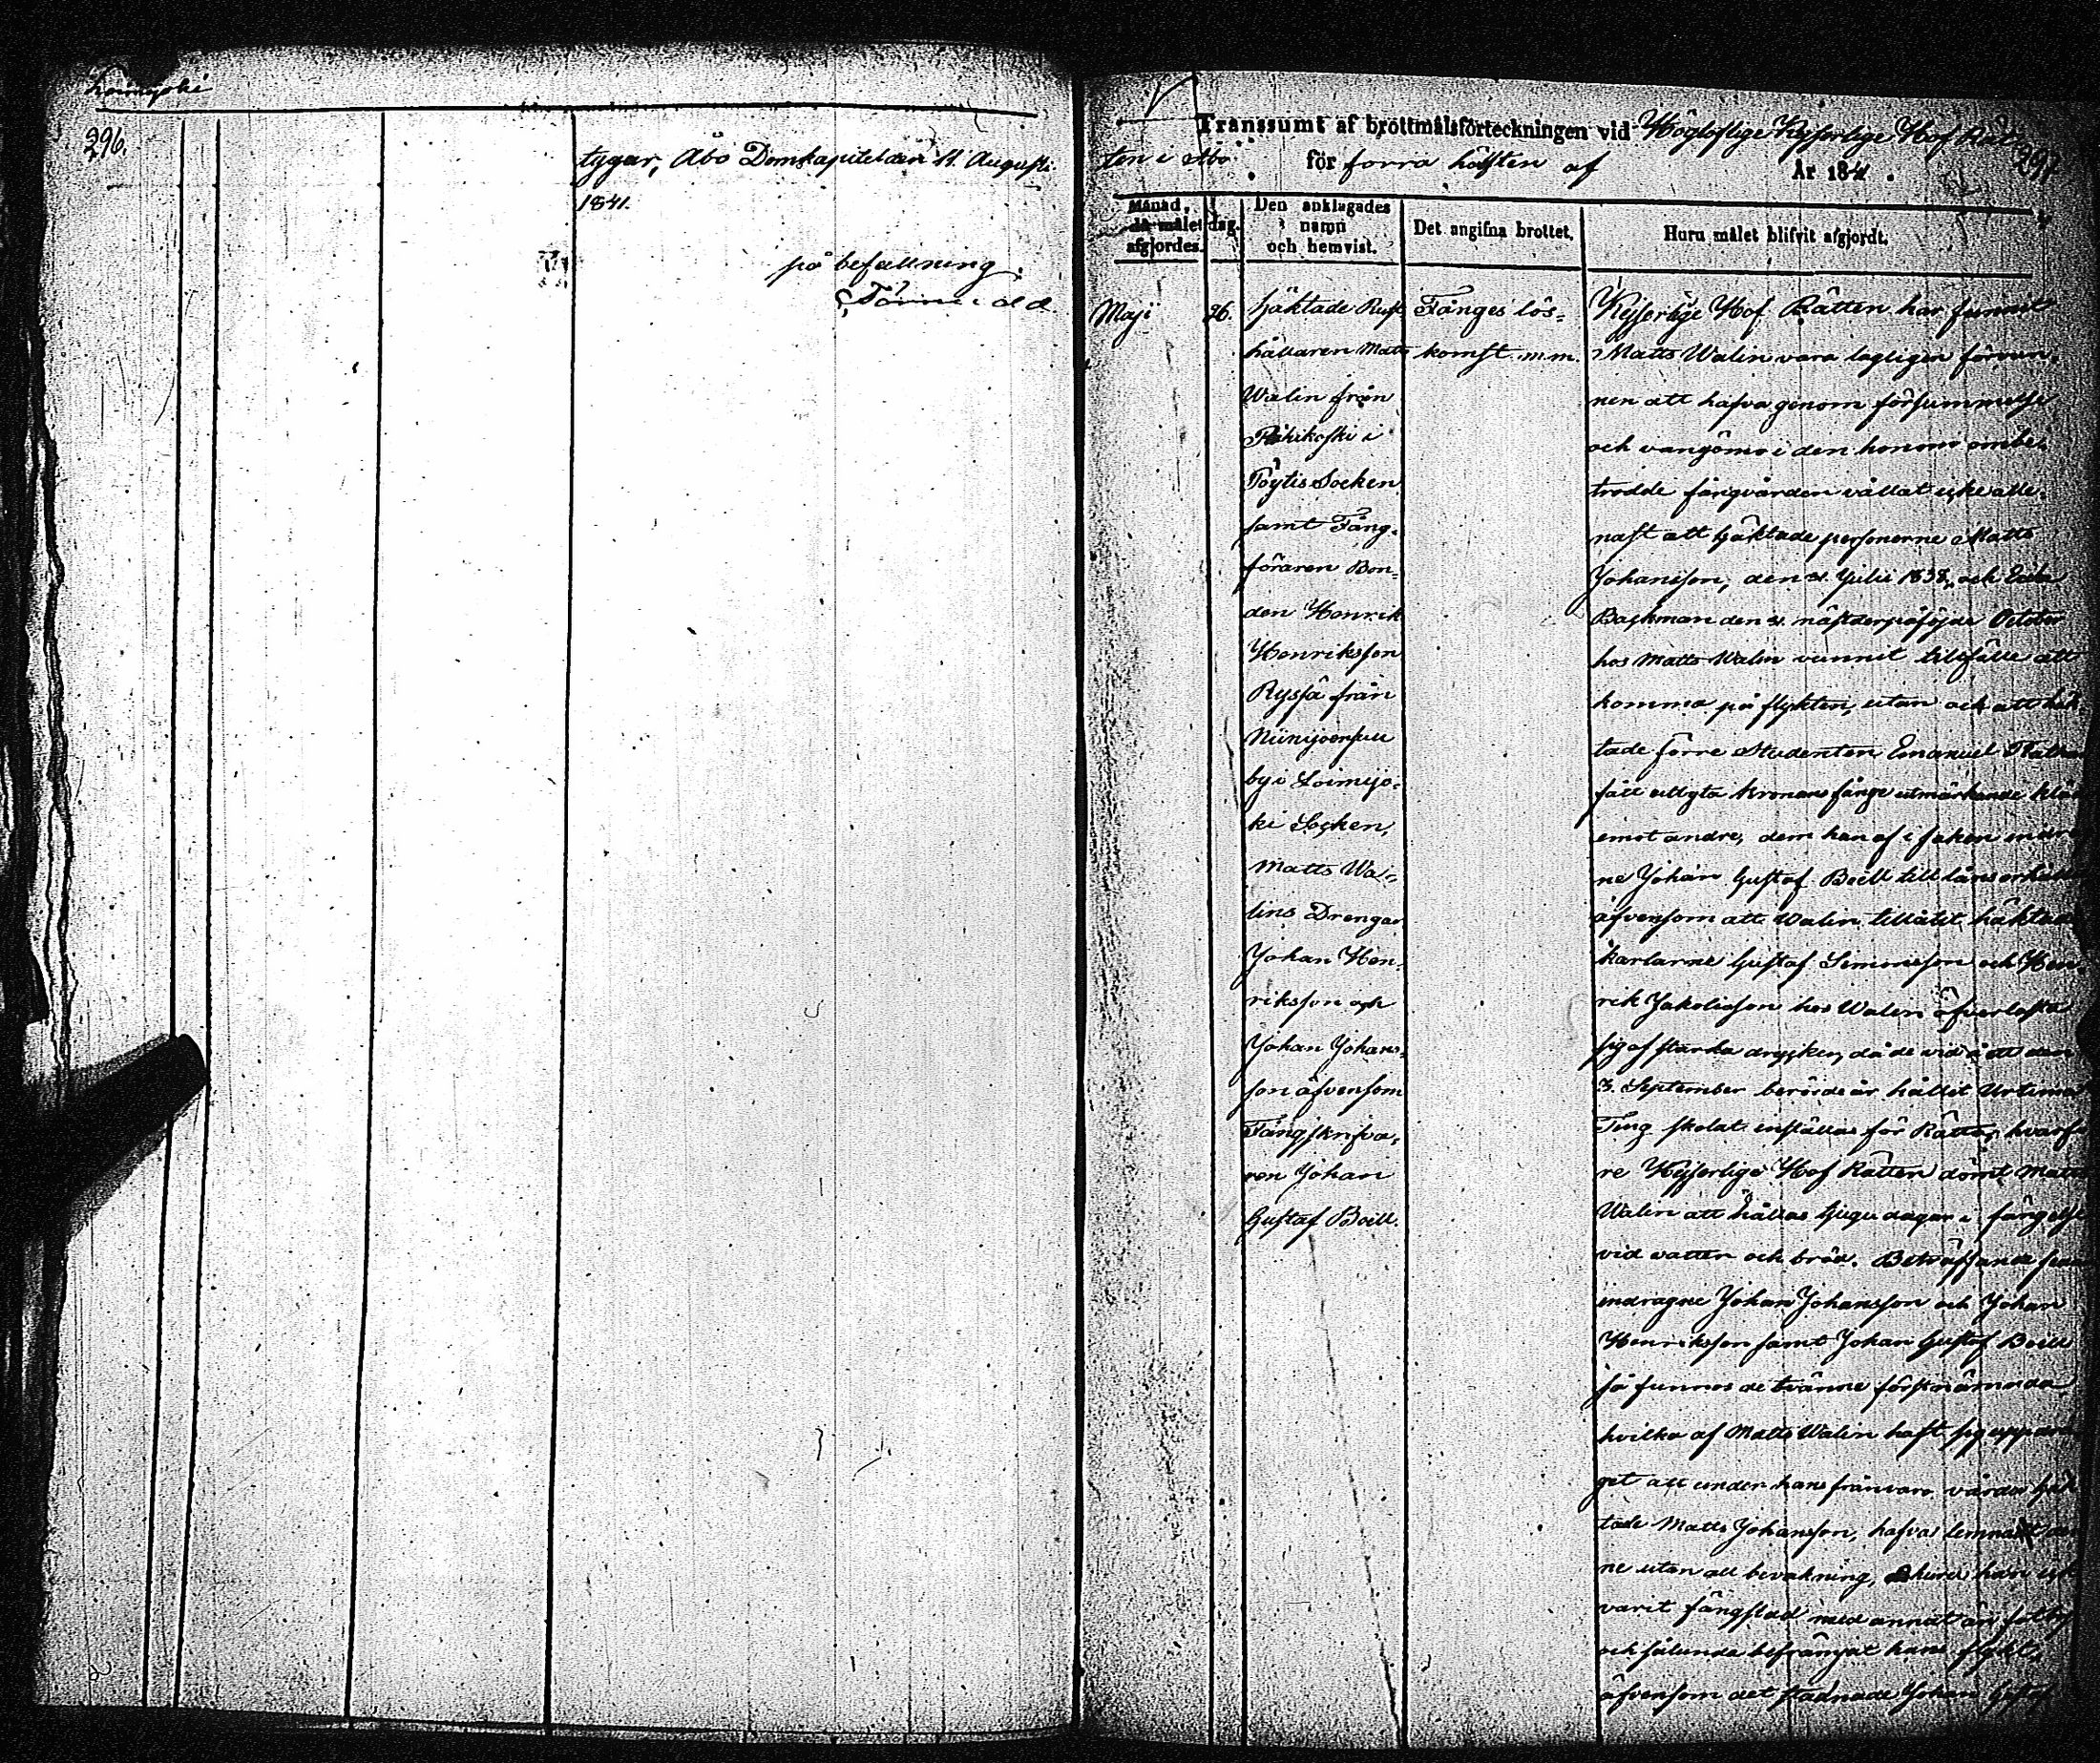 Loimijoki
296.
tygar, Åbo Domkapitel den 11 Augusti
1841.
på befallning:
Transsumt af brottmålsförteckningen vid Högloflige Kejserlige Hof Rät
ten i Åbo för förra hälften af År 1841.
297
Månad, då målet afgjordes.
dag.
Den anklagades namn och hemvist.
Det angifna brottet.
Huru målet blifvit afgjordt.
Maji
26.
häktade Rust-
hållaren Matts
Walin från
i
Pöytis Socken
samt Fång-
föraren Bon-
den Henrik
Henriksson
Ryssä från
Niinijoensuu
by i Loimijo-
ki Socken,
Matts Wa-
lins Drengar
Johan Hen-
riksson och
Johan Johans-
son äfvensom
Fångskrifva-
ren Johan
Gustaf Boëll.
Fånges lös-
komst m.m.
Kejserlige Hof Rätten har funnit
Matts Walin vara lagligen förvun-
nen att hafva genom försummelse
och vangömo i den honom ombe-
trodde fångvården vållat icke alle-
nast att häktade personerne Matts
Johansson, den 31 Julii 1838, och
Backman den 21 nästderpåföljde October
hos Matts Walin vunnit tillfälle att
komma på flykten, utan och att häk
tade förre Studenten Emanuel
fått utbyta Kronans fånge utmärkande
emot andre, dem han af i saken
ne Johan Gustaf Boëll till låns
äfvensom att Walin tillåtit häktade
karlarne Gustaf Simonsson och Hen-
rik Jakobsson hos Walin öfverlasta
sig af starka drycker, då de vid ett den
3. September berörde år hållit Urtima
Ting skolat inställas för Rätta, hvarfö
re Kejserlige Hof Rätten dömt Matts
Walin att hållas tjugu dagar i fängelse
vid vatten och bröd. Beträffande
indragne Johan Johansson och Johan
Henriksson samt Johan Gustaf Boëll
så funnos de tvänne förstnämnda
hvilka af Matts Walin haft sig uppdra
get att under hans frånvaro vårda häk
tade Matts Johansson, hafva lemnat den
ne utan all bevakning, ehuru han icke
varit fängslad med annat än
och sålunda befrämjat hans flykt,
äfvensom det stadnade Johan Gustaf